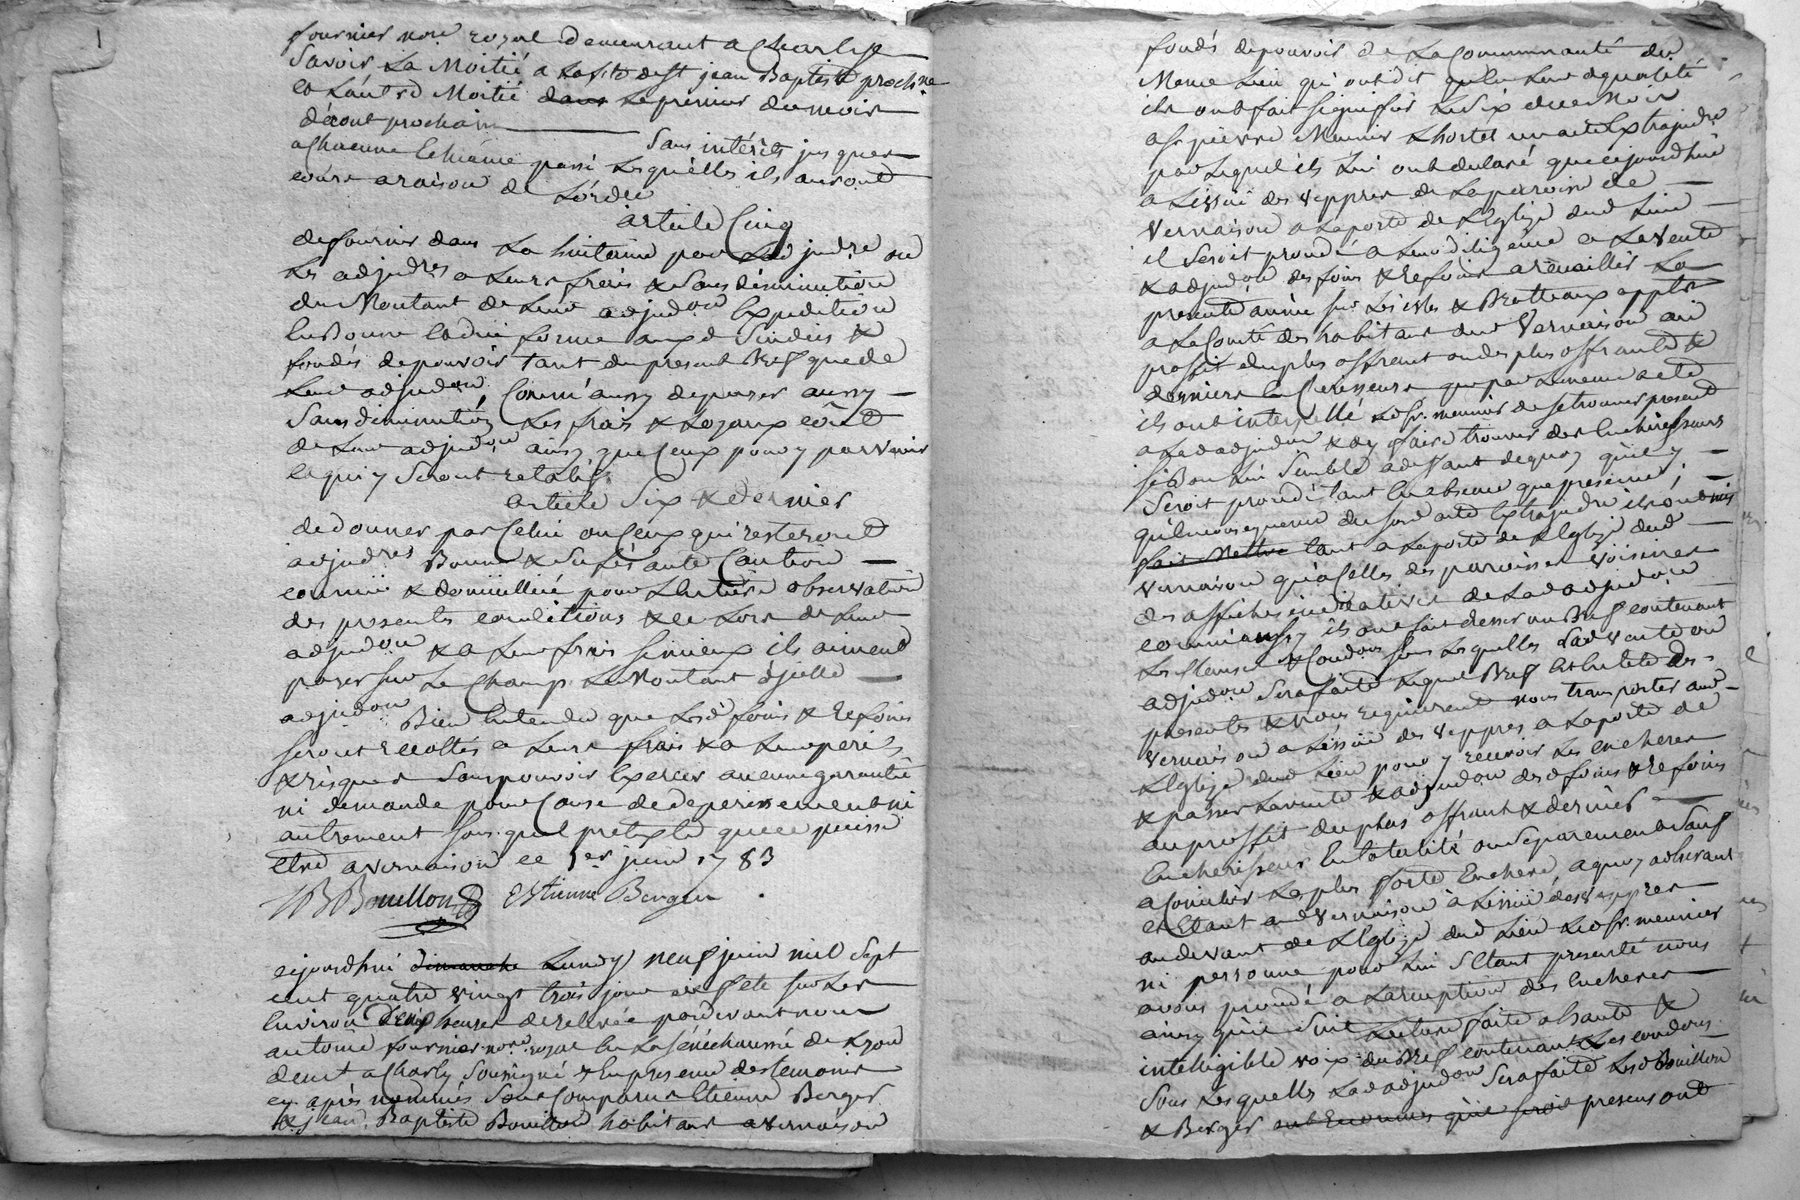 fournier nore royal demeurant a Charly
Savoir La Moitié a La fete de St jean Baptiste prochne
et Lautre Moitié dans Le premier du mois
d'aout prochain
Sans intérêts jusques
a Chacune Echéance passé Lesquelles ils auront
cours a raison de Lordce
article Cinq
de fournir dans La huitaine par Ladjudre ou
Les adjudres a Leurs frais & Sans diminution
du Montant de Leur adjudon Expedition
En Bonne et due forme auxd Sindics &
fondés de pouvoir tant du present Bref que de
Leur adjudon, Comme aussy de payer aussy
Sans diminution Les frais & Loyaux couts
de Leur adjudon ainsy que Ceux pour y parvenir
et qui y Seront relatifs
article Six & dernier
de donner par Celui ou Ceux qui resteront
adjudres Bonne & Suffisante Caution
connue & domicilliée pour Lentiere observation
des presentes conditions & ce Lors de Leur
adjudon & a Leur frais Si mieux ils aiment
payer sur Le Champ Le Montant d'jcelle
adjudon Bien Entendu que Lesd foins & refoins
Seront recoltés a Leurs frais & a Leurs perils
& risques Sans pouvoir Exercer aucune garantie
ni demande pour Cause de deperissement ni
autrement Sous quel pretexte que ce puisse
Etre a vernaison ce 1er juin 1783
JB Bouillond Estienne Berger
cejourdhui dimanche Lundy neuf juin mil Sept
cent quatre vingt trois jour de fete Sur Les
Environ Deux heures de relevée pardevant nous
antoine fournier nore royal En La sénéchaussée de Lyon
demt a Charly Soussigné & En presence des temoins
cy après nommés Sont Comparus Etienne Berger
& jean Baptiste Bouillon habitans a vernaison
fondés de pouvoir de La Communauté du
Meme Lieu qui ont dit qu'en Leur d qualité
ils ont fait signifier Le Six du ce Mois
a Sr pierre Meunier un acte Extrajudre
par Lequel ils Lui ont declaré que cejourdhui
a Lissue des vepres de La paroisse de
vernaison a La porte de LEglize dud Lieu
il Seroit procedé a Leur diligence a La vente
& adjudon des foins & refoins a recueillir La
presente année sur Les isles & Brotteaux appts
a La Comté des habitans dud Vernaison au
proffit du plus offrant ou des plus offrants &
derniers Encherisseurs que par Le meme acte
ils ont interpellé Led Sr meunier de se trouver present
a Lad adjudon & d'y faire trouver des Encherisseurs
si Bon Lui Semble adeffaut de quoy qu'il y
Seroit procedé tant En absence que presence,
qu'En consequence du Susd acte Extrajudre ils ont mis
fait Mettre tant a La porte de LEglize dud
vernaison qu'a Celles des paroisses Voisines
des affiches indicatives de Lad adjudon
comme aussy ils ont fait dresser un Bref contenant
Les Clauses & Condons sous Lesquelles Lad vente ou
adjudon Sera faite Lequel Bref Est En tete des
presentes & Nous requierent nous transporter aud
vernaison a Lissue des vepres a La porte de
LEglize dud Lieu pour y recevoir Les encheres
& passer La vente & adjudon desd foins & refoins
au proffit du plus offrant & dernier
Encherisseur En totalité ou Separement Sauf
a Concilier La plus forte Enchere, a quoy adherant
et Etant aud vernaison à Lissue des vepres
audevant de LEglize dud Lieu Led Sr meunier
ni personne pour Lui S'Etant presenté nous
avons procedé a La reception des Encheres
ainsy qu'il Suit Lecture faite a haute &
intelligible voix du Bref contenant Les condons
Sous Lesquelles Lad adjudon Sera faite Lesd Bouillon
& Berger presens ont